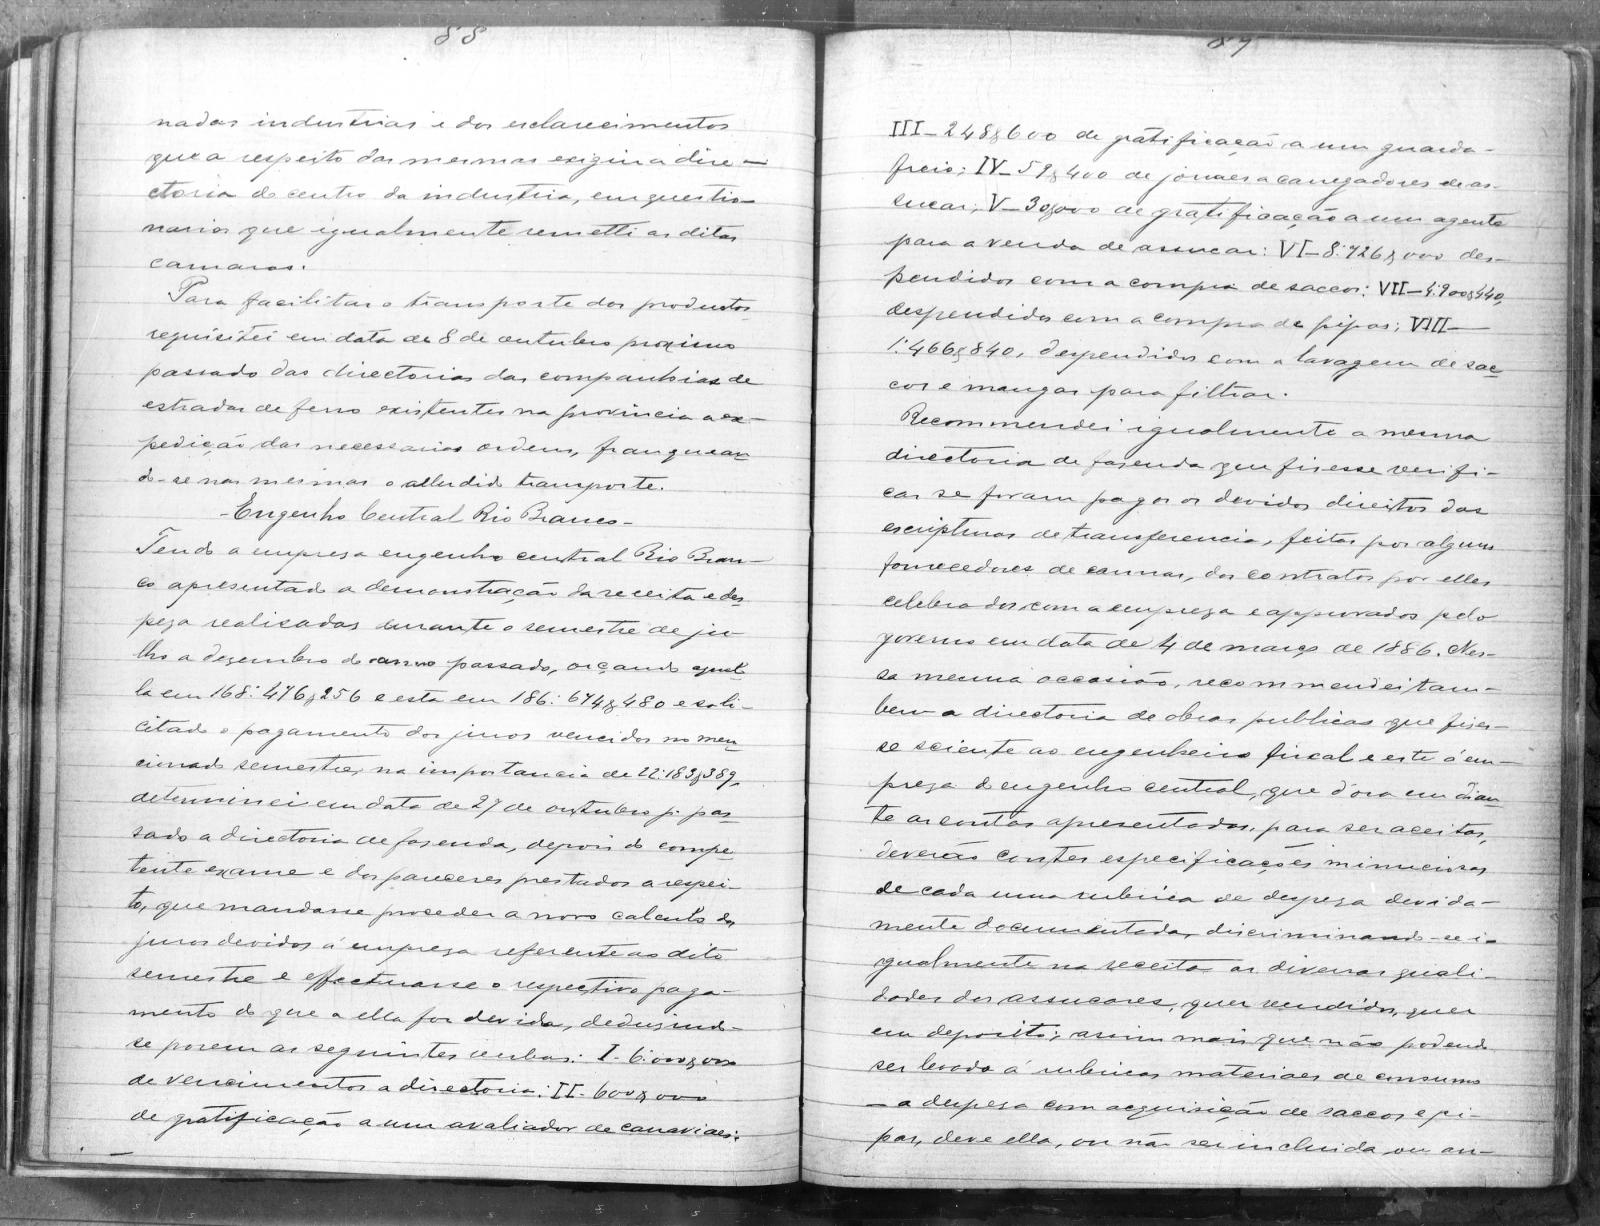 88
nadas industrias e dos esclarecimentos
que a respeito das mesmas exigiu a dire-
ctoria do centro da industria, em questio-
narios que igualmente remetti as ditas
camaras.
Para facilitar o transporte dos productos
requisitei em data de 8 de outubro proximo
passado das directorias das companhias de
estradas de ferro existentes na provincia a ex-
pedição das necessarias ordens, franquean
do-se nas mesmas o alludido transporte.
-Engenho Central Rio Branco-
Tendo a empresa engenho central Rio Bran-
co apresentado a demonstração da receita e des
peza realisadas durante o semestre de ju-
lho a dezembro do anno passado, orçando aquel
la em 168:476$256 e esta em 186:674$480 e soli-
citado o pagamento dos juros vencidos no men
cionado semestre, na importancia de 22:183$389,
determinei em data de 27 de outubro p. pas
sado a directoria de fazenda, depois do compe
tente exame e dos pareceres prestados a respei-
to, que mandasse proceder a novo calculo dos
juros devidos á empreza referente ao dito
semestre e effectuasse o respectivo paga-
mento do que a ella for devido, dedusindo-
se porem as seguintes verbas: I- 6:000$000
de vencimentos a directoria: II- 600$000
de gratificação a um avaliador de canaviaes;
89
III- 248$600 de gratificação a um guarda-
freio; IV- 59$400 de jornaes a carregadores de as-
sucar; V- 30$000 de gratificação a um agente
para a venda de assucar: VI- 8:726$000 des-
pendidos com a compra de saccos: VII- 4:900$440,
despendidos com a compra de pipas; VIII-
1:466$840, despendidos com a lavagem de sac
cos e mangas para filtrar.
Recommendei igualmente a mesma
directoria de fazenda que fisesse verifi-
car se foram pagos os devidos direitos das
escripturas de transferencia, feitas por alguns
fornecedores de cannas, dos contratos por elles
celebrados com a empreza e approvados pelo
governo em data de 4 de março de 1886. Nes-
sa mesma occasião, recommendei tam-
bem a directoria de obras publicas que fises-
se sciente ao engenheiro fiscal e este á em-
preza do engenho central, que d'ora em dian
te as contas apresentadas, para ser aceitas,
deverão conter especificações minuciosas
de cada uma rubrica de despeza devida-
mente documentada, discriminando-se i-
gualmente na receita as diversas quali-
dades dos assucares, quer vendidos, quer
em deposito; assim mais que não podendo
ser levada á rubricas materiaes de consumo
- a despesa com acquisição de saccos e pi-
pas, deve ella, ou não ser incluida, ou an-